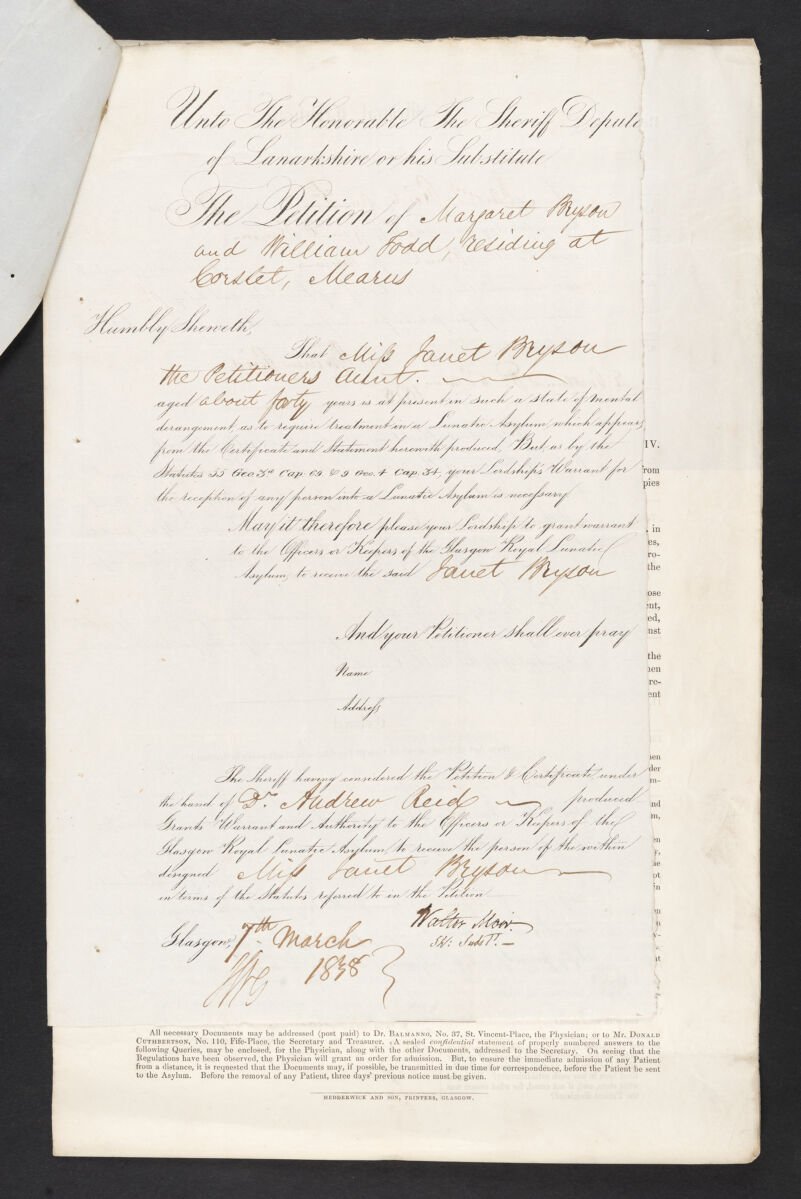 Unto The Honorable The Sheriff Depute
of Lanarkshire or his Substitute
The Petition of Margaret Bryson
and William Todd, residing at
Corslet, Mearns
Humbly Sheweth,
That Miss Janet Bryson
the Petitioners Aunt.
aged about forty years is at present in such a state of mental
derangement, as to require treatment in a Lunatic Asylum, which appears
from the Certificate and Statement herewith produced, But as by the
Statutes 55 Geo. 3d Cap. 69. & 9 Geo. 4 Cap. 34, your Lordship's Warrant for
the reception of any person into a Lunatic Asylum is necessary
May it therefore please your Lordship to grant warrant
to the Officers or Keepers of the Glasgow Royal Lunatic
Asylum, to receive the said Janet Bryson
And your Petitioner shall ever pray
Name
Address
The Sheriff having considered the Petition & Certificate under
the hand of Dr. Andrew Reid produced
Grants Warrant and Authority to the Officers or Keepers of the
Glasgow Royal Lunatic Asylum, to receive the person of the within
designed Miss Janet Bryson
in terms of the Statutes referred to in the Petition
Glasgow, 7th March
1838
Walter Moir
Sh: Subst.
IV.
from
pies
, in
es,
ro-
the
ose
ent,
ed,
ust
the
hen
re-
ent
All necessary Documents may be addressed (post paid) to Dr. Balmanno, No. 37, St. Vincent-Place, the Physician; or to Mr. Donald
Cuthbertson, No. 110, Fife-Place, the Secretary and Treasurer. A sealed confidential statement of properly numbered answers to the
following Queries, may be enclosed, for the Physician, along with the other Documents, addressed to the Secretary. On seeing that the
Regulations have been observed, the Physician will grant an order for admission. But, to ensure the immediate admission of any Patient
from a distance, it is requested that the Documents may, if possible, be transmitted in due time for correspondence, before the Patient be sent
to the Asylum. Before the removal of any Patient, three days' previous notice must be given.
HEDDERWICK AND SON, PRINTERS, GLASGOW.